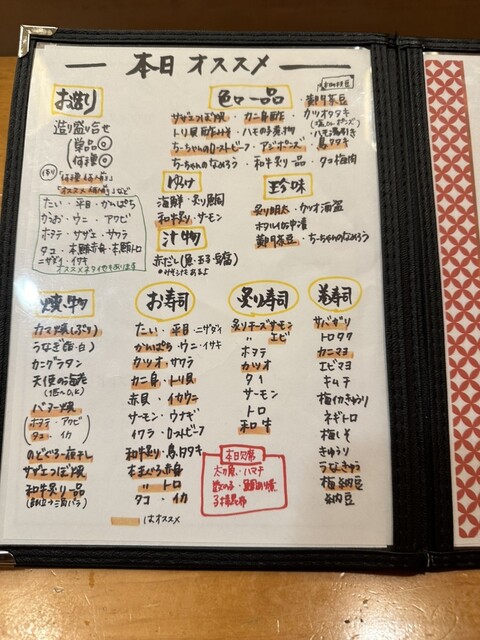 本日オススメ
お造り
造り盛り合せ
単品◎
何種◎
「オススメ 1点〆」など
たい・平目・かんぱち
かつお・ウニ・アワビ
ホタテ・サザエ・サワラ
タコ・本鮪赤身・本鮪トロ
ニザダイ・イサキ
オススメネタイヤもあります
色々一品
サザエつぼ焼・カニ身酢
トリ貝酢みそ・ハモの子煮物
ちーちゃんのローストビーフ・アジポンズ
ちーちゃんのなめろう・和牛炙り一品・タコ梅肉
カツオタタキ
ハモ湯引き
鳥タタキ
海鮮・炙り鯛
和牛炙り・サーモン
汁物
赤だし(魚・玉子・豆腐)
珍味
炙り明太・カツオ酒盗
ホタルイカ沖漬
ちーちゃんのなめろう
焼物
カマ焼(ぶり)
うなぎ(蒲・白)
カニグラタン
天使の海老
(塩〜〇ヒ)
バター焼
(ホタテ・アワビ
タコ・イカ)
のどぐろ一夜干し
サザエつぼ焼
和牛炙り一品
お寿司
たい・平目・ニザダイ
かんぱち・ウニ・イサキ
カツオ・サワラ
カニ身・トリ貝
赤貝・イカウニ
サーモン・ウナギ
イクラ・ローストビーフ
和牛炙り・鳥タタキ
本まぐろ赤身
〃 トロ
タコ・イカ
炙り寿司
炙りチーズサーモン
〃 エビ
ホタテ
カツオ
タイ
サーモン
トロ
和牛
巻寿司
サバきり
トロタク
カニマヨ
エビマヨ
キムチ
梅イカきゅうり
ネギトロ
梅しそ
きゅうり
うなきゅう
梅納豆
納豆
太刀魚・ハマチ
数の子
子持昆布
はオススメ